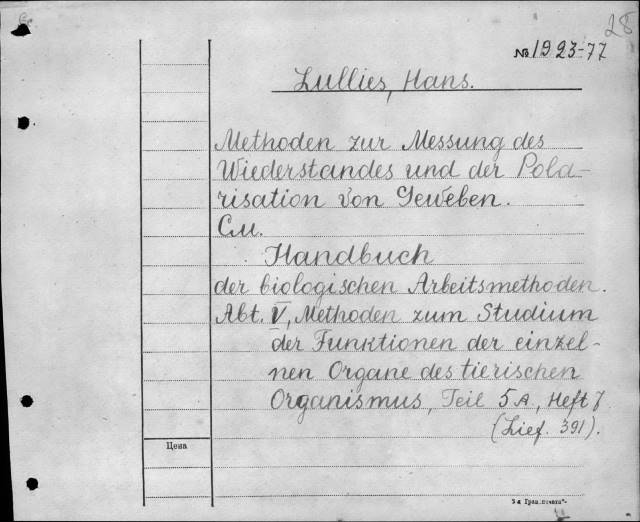 28
№ 1923-77
Lullies, Hans.
Methoden zur Messung des
Wiederstandes und der Pola-
risation von Geweben.
См.
Handbuch
der biologischen Arbeitsmethoden.
Abt. V, Methoden zum Studium
der Funktionen der einzel-
nen Organe des tierischen
Organismus, Teil 5A, Heft 7
(Lief. 391).
Цена